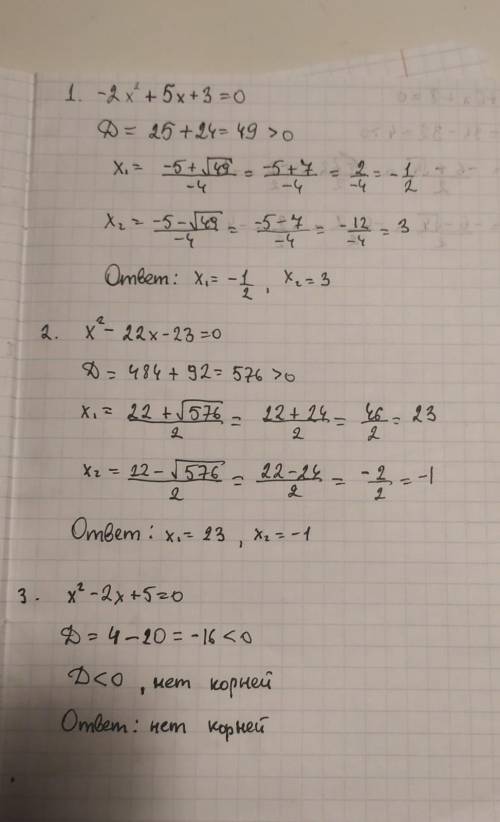 1. -2x² + 5x + 3 = 0
D = 25 + 24 = 49 > 0
x₁ = (-5 + √49)/-4 = (-5 + 7)/-4 = 2/-4 = -1/2
x₂ = (-5 - √49)/-4 = (-5 - 7)/-4 = -12/-4 = 3
Ответ: x₁ = -1/2, x₂ = 3
2. x² - 22x - 23 = 0
D = 484 + 92 = 576 > 0
x₁ = (22 + √576)/2 = (22 + 24)/2 = 46/2 = 23
x₂ = (22 - √576)/2 = (22 - 24)/2 = -2/2 = -1
Ответ: x₁ = 23, x₂ = -1
3. x² - 2x + 5 = 0
D = 4 - 20 = -16 < 0
D < 0, нет корней
Ответ: нет корней